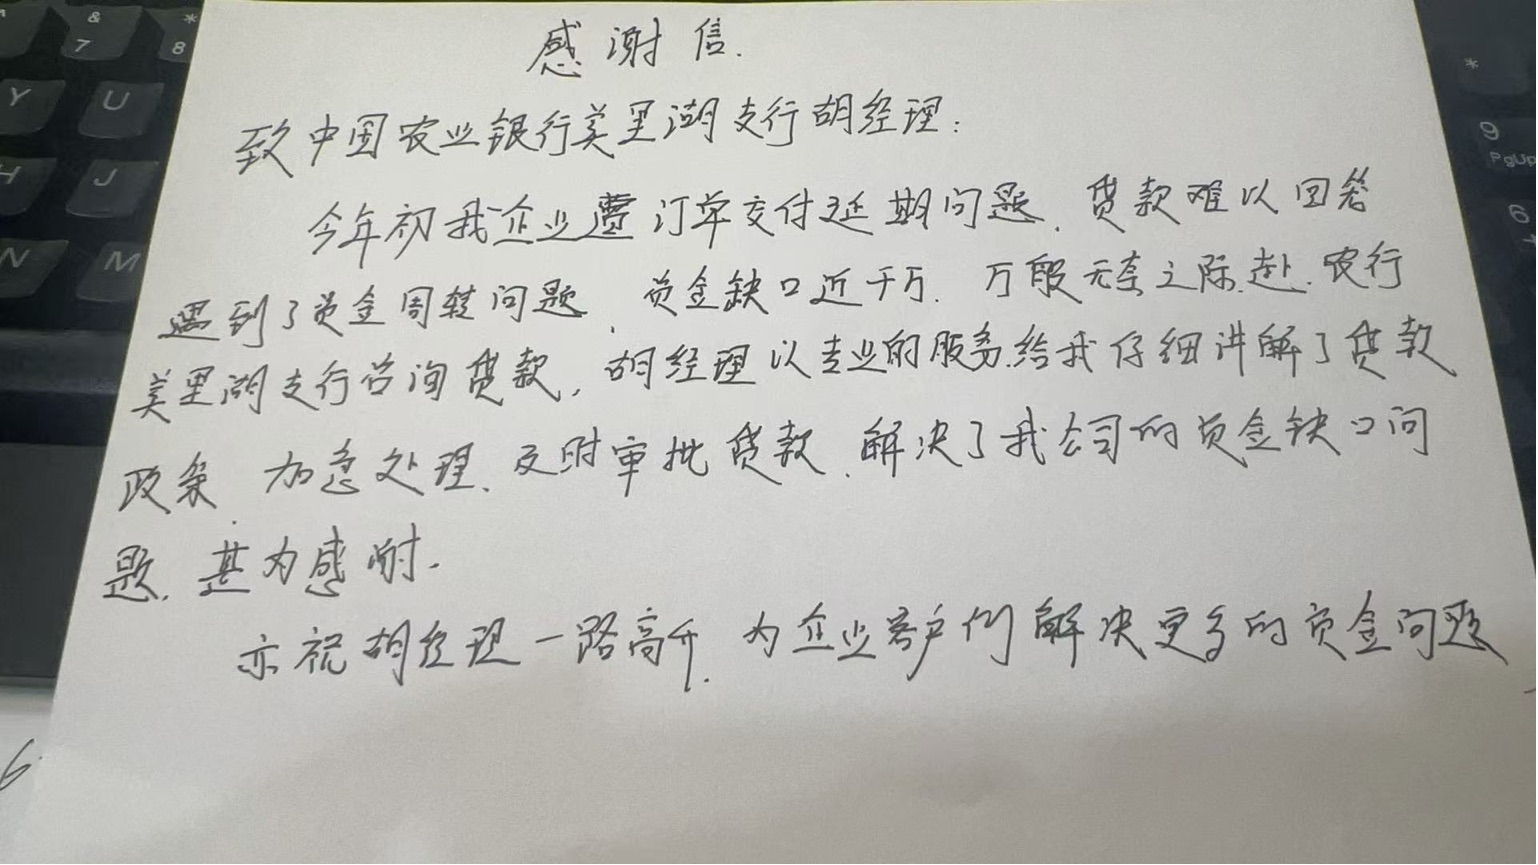 感谢信.
致中国农业银行美里湖支行胡经理:
今年初我企业遭订单交付延期问题、货款难以回笼
遇到了资金周转问题,资金缺口近千万.万般无奈之际.赴.农行
美里湖支行咨询贷款,胡经理以专业的服务.给我仔细讲解了贷款
政策 加急处理、及时审批贷款、解决了我公司的资金缺口问
题.甚为感谢.
亦祝胡经理一路高升.为企业客户们解决更多的资金问题
&
7
*
8
Y
U
H
J
N
M
*
9
PgUp
6